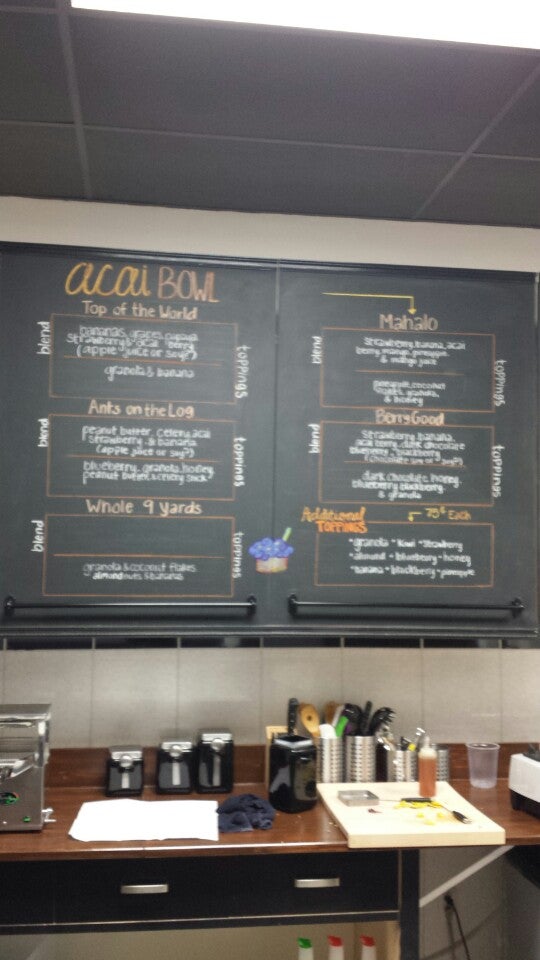 acai BOWL
Top of the World
blend
bananas, grapes, papaya
strawberry & acai berry
(apple juice or soy?)
toppings
granola & banana
Ants on the Log
blend
peanut butter, celery, acai
strawberry & banana
(apple juice or soy?)
toppings
blueberry, granola, honey,
peanut butter & celery stick
Whole 9 Yards
blend
toppings
granola & coconut flakes
almond nuts & bananas
Mahalo
blend
Strawberry, banana, acai
berry, mango, pineapple
& mango juice
toppings
pineapple, coconut
flakes, granola,
& honey
Berry Good
blend
Strawberry, banana,
acai berry, dark chocolate
blueberry, blackberry
(chocolate soy or soy?)
toppings
dark chocolate, honey,
blueberry, blackberry
& granola
Additional
TOPPINGS
75¢ Each
*granola *kiwi *strawberry
*almond *blueberry *honey
*banana *blackberry *pineapple